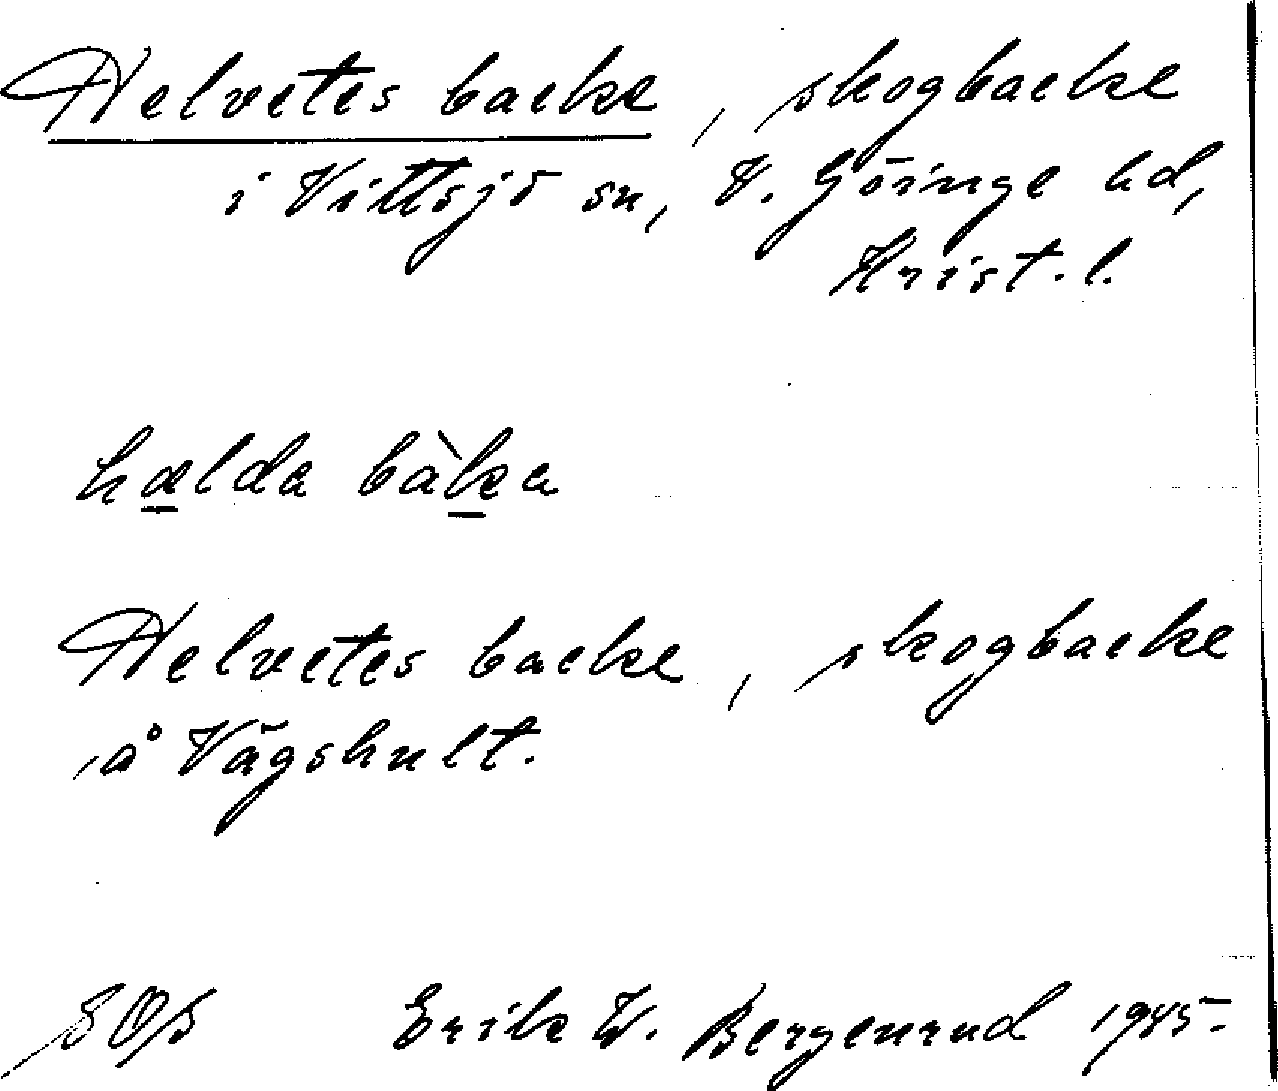 Helvetes backe, skogbacke
i Vittsjö sn, V. Göinge hd,
Krist. l.
hælda bàka
Helvetes backe, skogbacke
å Vägshult.
SOS Erik W. Bergenrud 1945.